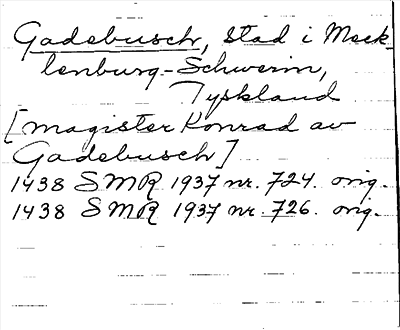 Gadebusch, stad i Meck-
lenburg-Schwerin,
Tyskland
[magister Konrad av
Gadebusch]
1438 SMR 1937 nr. 724. orig.
1438 SMR 1937 nr. 726. orig.